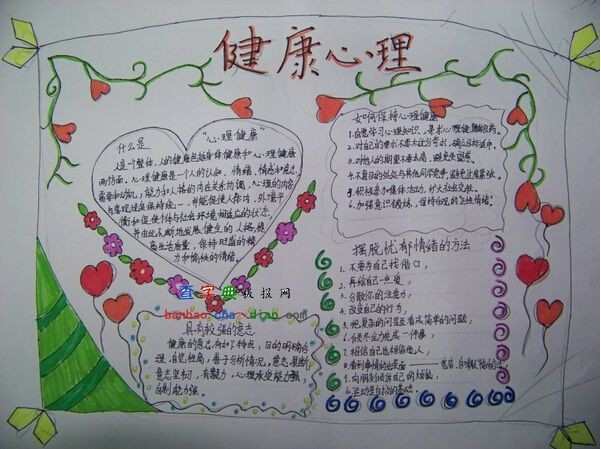 健康心理
什么是
“心理健康”
人是个整体，人的健康包括身体健康和心理健康
两方面。心理健康是一个人的认知、情绪、情感和意志、
需要和动机，能力和人格的内在关系协调，心理的内容
与客观世界保持统一，并能促使人体内、外环境平
衡和促使个体与社会环境相适应的状态，
并由此不断地发展健全的人格，提
高生活质量，保持旺盛的精
力和愉快的情绪。
如何保持心理健康
1.自觉学习心理知识，寻求心理健康
2.对自己的要求不要太过分苛求，确立
3.对他人的期望不要太高，避免失望感
4.不盲目的处处与其他同学竞争，避免过度紧张
5.积极参加集体活动，扩大社会交往。
6.加强意识锻炼，保持自我的
摆脱忧郁情绪的方法
1.不要为自己找借口，
2.再给自己一点爱，
3.分散你的注意力，
4.改变自己的行为，
5.把复杂的问题看成简单的问题，
6.
7.相信自己也相信他人，
8.看到事情的光明面
9.向朋友倾诉自己的烦恼，
查字典板报网
banbao.chazidian.com
具有较强的意志
健康的意志有如下特点：目的明确合
理，自觉性高，善于分析情况，意志果断
意志坚韧，有毅力，心理承受能力强，
自制能力强。